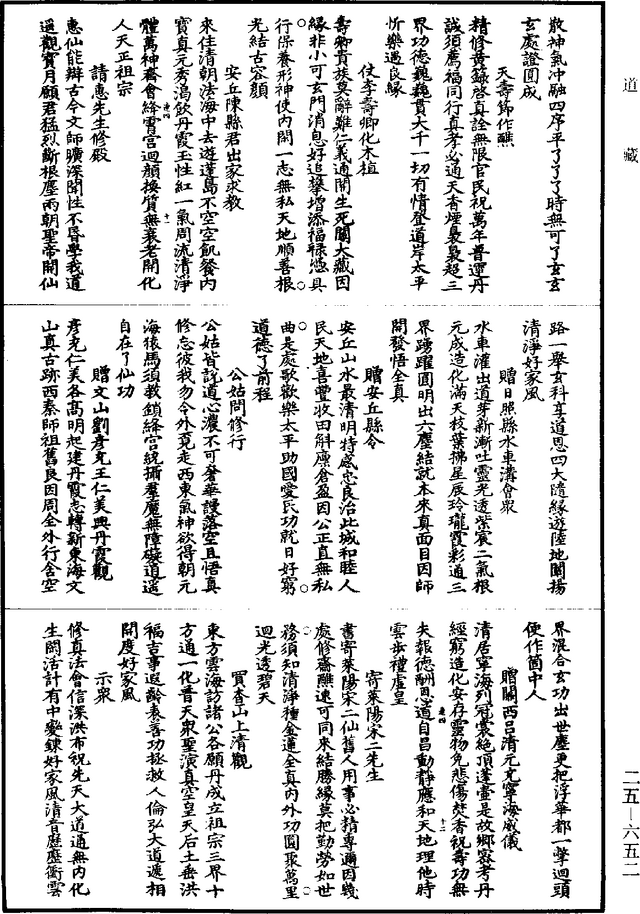 道藏
散神氣沖融四序平了了了時無可了玄玄
玄處證圓成
天壽節作醮
精修黃籙啓真詮無限官民祝萬年普運丹
誠須薦福同行真孝必通天香煙裊裊超三
界功德巍巍貫大千一切有情登道岸太平
忻樂遇良緣
仗李壽卿化木植
壽卿貴族莫辭難仁義通開生死關大藏因
緣非小可玄門消息好追攀增添福祿憑具
行保養形神使內閑一志無私天地順善根
光結古容顏
安丘陳縣君出家求教
來往清朝法海中去遊蓬島不空空飢餐內
寶真元秀渴飲丹霞玉性紅一氣周流清淨
體萬神齊會絳霄宮迴顏換質無衰老開化
人天正祖宗
請惠先生修殿
惠仙能辯古今文師曠深聞性不昏學我道
遙觀寶月願君猛烈斷根塵兩朝聖帝開仙
路一舉玄科享道恩四大隨緣遊陸地闡揚
清淨好家風
贈日照縣水車溝會眾
水車灌出道芽新漸吐靈光透紫宸二氣根
元成造化滿天枝葉拂星辰玲瓏霞彩通三
界踴躍圓明出六塵結就本來真面目因師
開發悟全真
贈安丘縣令
安丘山水最清明特感忠良治此城和睦人
民天地喜豐收田斛廩倉盈因公正直無私
曲是處歌歡樂太平助國愛民功就日好窮
道德了前程
公姑問修行
公姑皆說道心濃不可奢華謾落空且悟真
修忘彼我勿令外覓走西東氣神欲得朝元
海猿馬須教鎖絳宮統攝羣魔無障礙逍遥
自在了仙功
贈文山劉彥克王仁美興丹霞觀
彥克仁美各高明起建丹霞志轉新東海文
山真古跡西秦師祖舊良因周全外行含空
界混合玄功出世塵更把浮華都一擎迴頭
便作箇中人
贈關西呂清元充寧海威儀
清居寧海列冠裳絕頂蓬壺是故鄉密考丹
經窮造化安存靈物免悲傷焚香祝壽功無
失報德酬恩道自昌動靜應和天地理他時
雲步禮虛皇
寄萊陽宋二先生
書寄萊陽宋二仙舊人用事必精專邇因幾
處修齋醮速可同來結勝緣莫把動勞如世
務須知清淨種金蓮全真內外功圓聚萬里
迴光透碧天
買查山上清觀
東方雲海訪諸公各願丹成立祖宗三界十
方通一化普天眾聖演真空皇天后土垂洪
福吉事遐齡表善功拯救人倫弘大道遞相
開度好家風
示眾
修真法會信深洪布祝先天大道通無內化
生閑活計有中變鍊好家風清音歷歷衝雲
二五—六五二